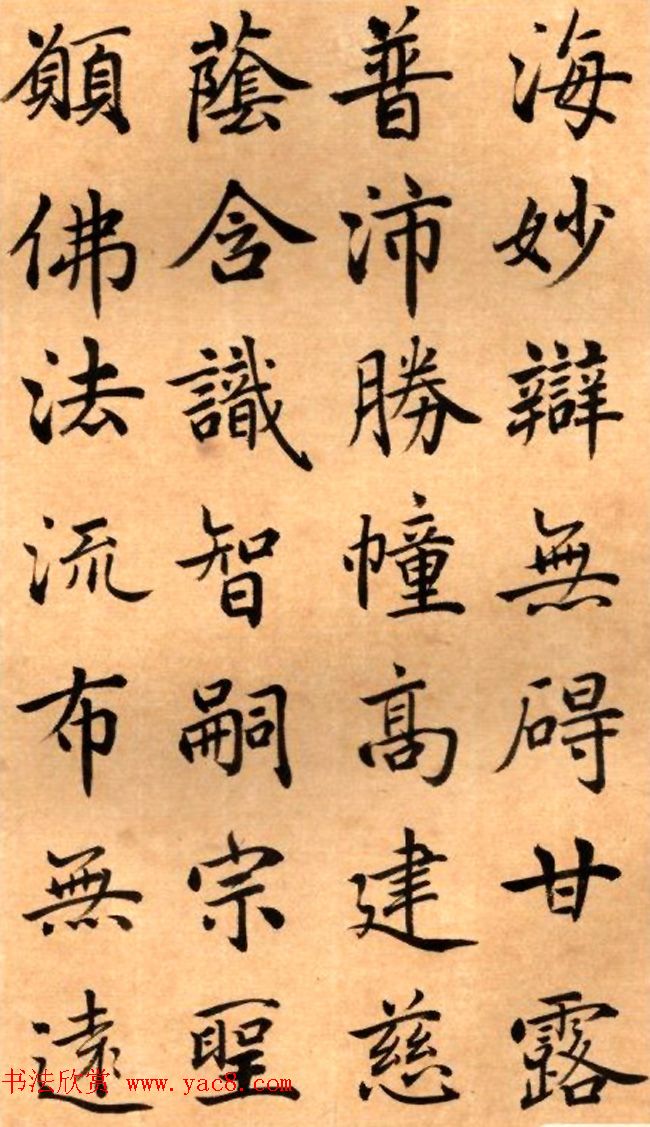 海妙辯無碍甘露
普沛勝幢高建慈
蔭含識智嗣宗聖
願佛法流布無遠
书法欣赏 www.yac8.com